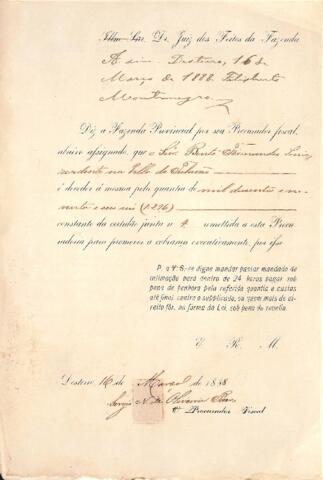 Illmo Snr. Dr. Juiz dos Feitos da Fazenda
A sim. Desterro, 16 de
Março de 1888. Felisberto
Montenegro
Diz a Fazenda Provincial por seu Procurador fiscal,
abaixo assignado, que o Snr. Bento Fernandes
é devedor á mesma pela quantia de mil duzentos e no-
venta e seis reis (1$296)
constante da certidão junta n. 4 remettida a esta Procu
radoria para promover a cobrança executivamente, por isso
P. a V. S. se digne mandar passar mandado de
intimação para dentro de 24 horas pagar sob
pena de penhora pela referida quantia e custas
até final, contra o supplicado, ou quem mais de di-
reito fôr, na forma da Lei, sob pena de revelia.
E. R. M.
Desterro 16 de Março de 1888
Sergio N. de Oliveira
O Procurador Fiscal